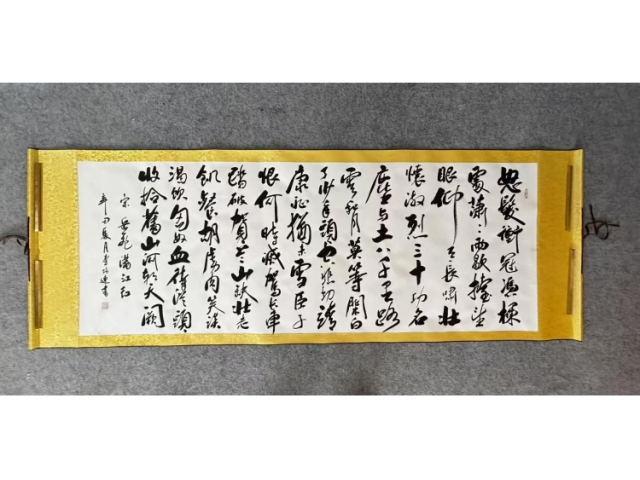 怒髮衝冠憑欄
處蕭〻雨歇擡望
眼仰天長嘯壯
懷激烈三十功名
塵与土八千里路
雲和月莫等閑白
了少年頭空悲切靖
康恥猶未雪臣子
恨何時滅駕長車
踏破賀蘭山缺壯志
飢餐胡虜肉笑談
渴飲匈奴血待從頭
收拾舊山河朝天闕
宋岳飛滿江紅
辛丑夏月李書